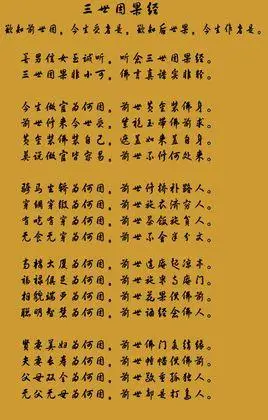 三世因果经
欲知前世因，今生受者是，欲知后世果，今生作者是。
善男信女至诚听，听念三世因果经。
三世因果非小可，佛言真语实非轻。
今生做官为何因，前世黄金装佛身。
前世修来今世受，紫袍玉带佛前求。
黄金装佛装自己，遮盖如来盖自身。
莫说做官皆容易，前世不修何处来。
骑马坐轿为何因，前世修桥补路人。
穿绸穿缎为何因，前世施衣济穷人。
有吃有穿为何因，前世茶饭施贫人。
无食无穿为何因，前世不舍半分文。
高楼大厦为何因，前世造庵起凉亭。
福禄俱足为何因，前世施米与庵门。
相貌端严为何因，前世花果供佛前。
聪明智慧为何因，前世诵经念佛人。
贤妻美妇为何因，前世佛门多结缘。
夫妻长寿为何因，前世幢幡供佛前。
父母双全为何因，前世敬重孤独人。
无父无母为何因，前世都是打鸟人。